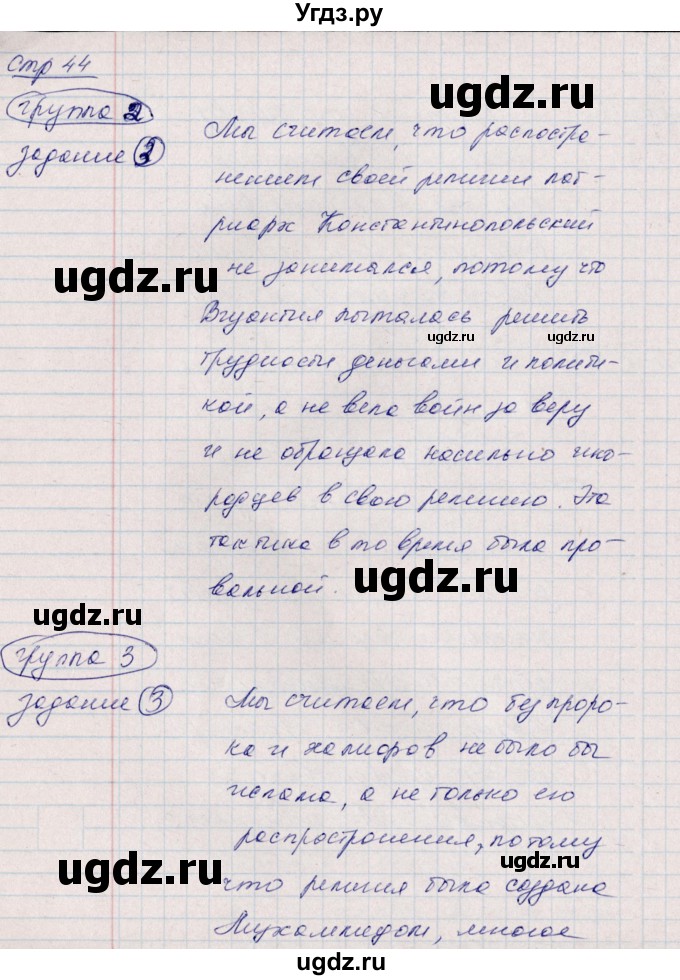 Угдз.ру
Стр 44
ugdz.ru
группа 2
задание 2
Мы считаем, что распостра-
нением своей религии пат-
риарх Константинопольский
ugdz.ru
не занимался, потому что
Византия пыталась решить
ugdz.ru ugdz.ru
трудности деньгами и полити-
кой, а не вела войн за веру
и не обращала насильно ино-
родцев в свою религию. Эта
тактика в то время была про-
вальной.
ugdz.ru
ugdz.ru
группа 3
задание 3
Мы считаем, что без проро-
ка и халифов не было бы
ислама, а не только его
распространения, потому
ugdz.ru
ugdz.ru
что религия была создана
Мухаммедом, многое
ugdz.ru